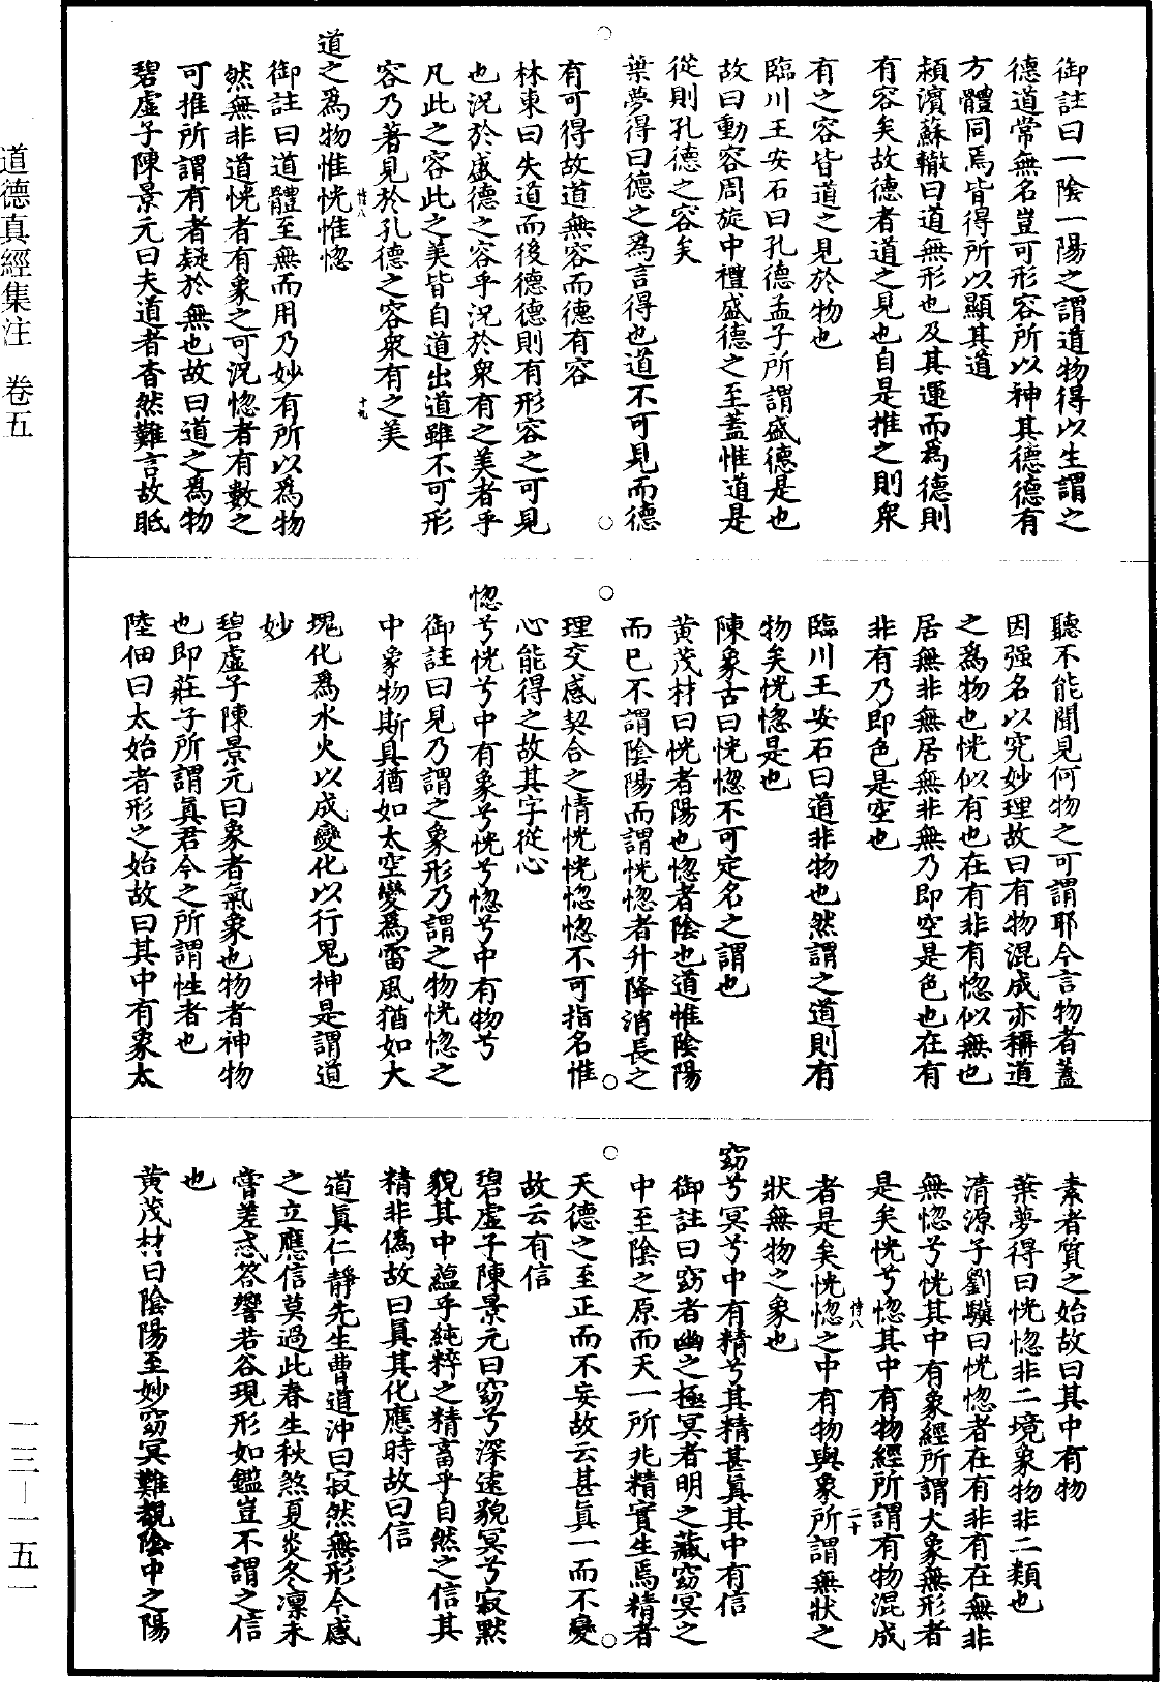 道德真經集注　卷五
一三—一五一
御註曰一陰一陽之謂道物得以生謂之
德道常無名豈可形容所以神其德德有
方體同焉皆得所以顯其道
潁濱蘇轍曰道無形也及其運而為德則
有容矣故德者道之見也自是推之則衆
有之容皆道之見於物也
臨川王安石曰孔德孟子所謂盛德是也
故曰動容周旋中禮盛德之至蓋惟道是
從則孔德之容矣
葉夢得曰德之為言得也道不可見而德
有可得故道無容而德有容
林東曰失道而後德德則有形容之可見
也況於盛德之容乎況於衆有之美者乎
凡此之容此之美皆自道出道雖不可形
容乃著見於孔德之容衆有之美
恃八
十九
道之為物惟恍惟惚
御註曰道體至無而用乃妙有所以為物
然無非道恍者有象之可況惚者有數之
可推所謂有者疑於無也故曰道之為物
碧虛子陳景元曰夫道者杳然難言故眂
聽不能聞見何物之可謂耶今言物者蓋
因强名以究妙理故曰有物混成亦稱道
之為物也恍似有也在有非有惚似無也
居無非無居無非無乃即空是色也在有
非有乃即色是空也
臨川王安石曰道非物也然謂之道則有
物矣恍惚是也
陳象古曰恍惚不可定名之謂也
黄茂材曰恍者陽也惚者陰也道惟陰陽
而已不謂陰陽而謂恍惚者升降消長之
理交感契合之情恍恍惚惚不可指名惟
心能得之故其字從心
惚兮恍兮中有象兮恍兮惚兮中有物兮
御註曰見乃謂之象形乃謂之物恍惚之
中象物斯具猶如太空變為雷風猶如大
塊化為水火以成變化以行鬼神是謂道
妙
碧虛子陳景元曰象者氣象也物者神物
也即莊子所謂真君今之所謂性者也
陸佃曰太始者形之始故曰其中有象太
素者質之始故曰其中有物
葉夢得曰恍惚非二境象物非二類也
清源子劉驥曰恍惚者在有非有在無非
無惚兮恍其中有象經所謂大象無形者
是矣恍兮惚其中有物經所謂有物混成
恃八
二十
者是矣恍惚之中有物與象所謂無狀之
狀無物之象也
窈兮冥兮中有精兮其精甚真其中有信
御註曰窈者幽之極冥者明之藏窈冥之
中至陰之原而天一所兆精實生焉精者
天德之至正而不妄故云甚真一而不變
故云有信
碧虛子陳景元曰窈兮深遠貌冥兮寂默
貌其中蘊乎純粹之精畜乎自然之信其
精非偽故曰真其化應時故曰信
道真仁靜先生曹道沖曰寂然無形今感
之立應信莫過此春生秋煞夏炎冬凛未
嘗差忒答響若谷現形如鑑豈不謂之信
也
黄茂材曰陰陽至妙窈冥難覩陰中之陽